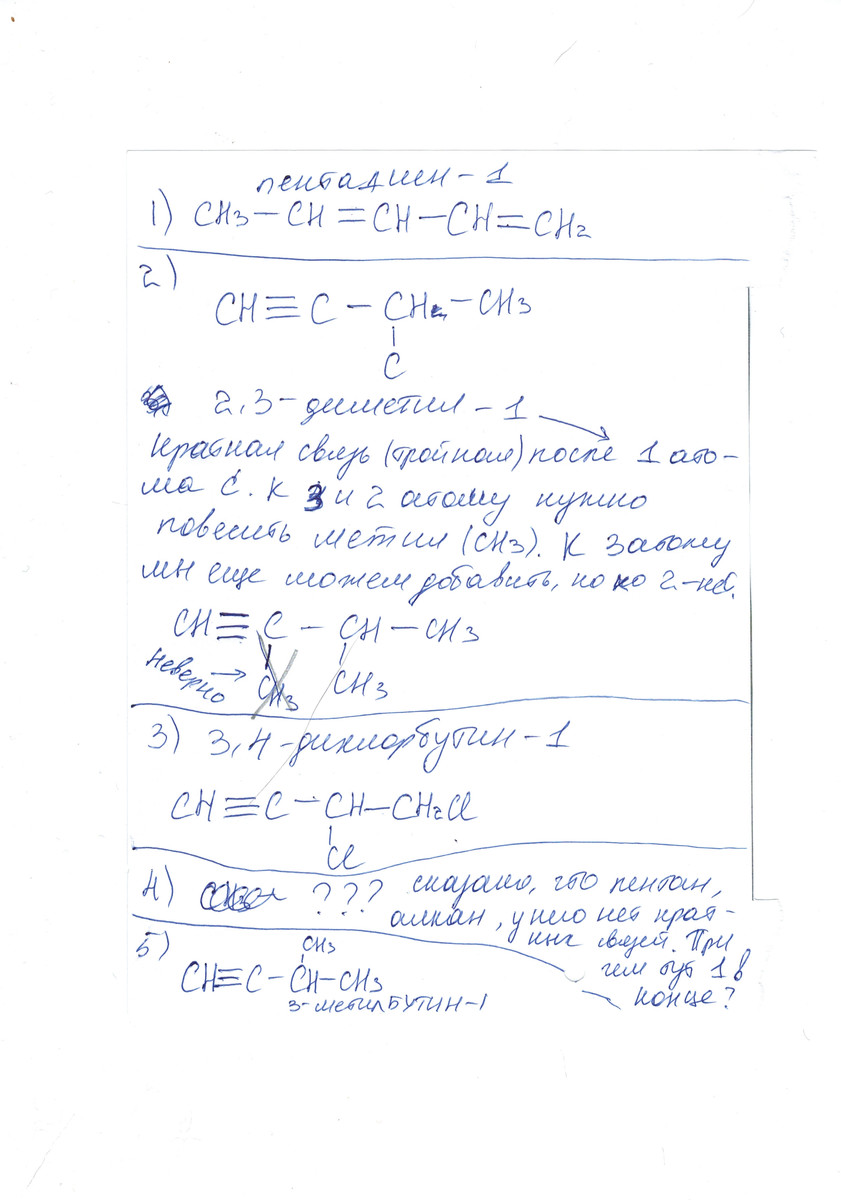 пентадиен-1
1) CH3-CH=CH-CH=CH2
2)
CH≡C-CH2-CH3
C
2,3-диметил-1
Кратная связь (тройная) после 1 ато-
ма C. К 3 и 2 атому нужно
повесить метил (CH3). К 3 атому
мы еще можем добавить, но ко 2-нет.
CH≡C-CH-CH3
неверно → CH3 CH3
3) 3,4-дихлорбутин-1
CH≡C-CH-CH2Cl
Cl
4) ??? сказано, что пентан,
алкан, у него нет крат-
ных связей. При
чем тут 1 в
конце?
5) CH3
CH≡C-CH-CH3
3-метилбутин-1